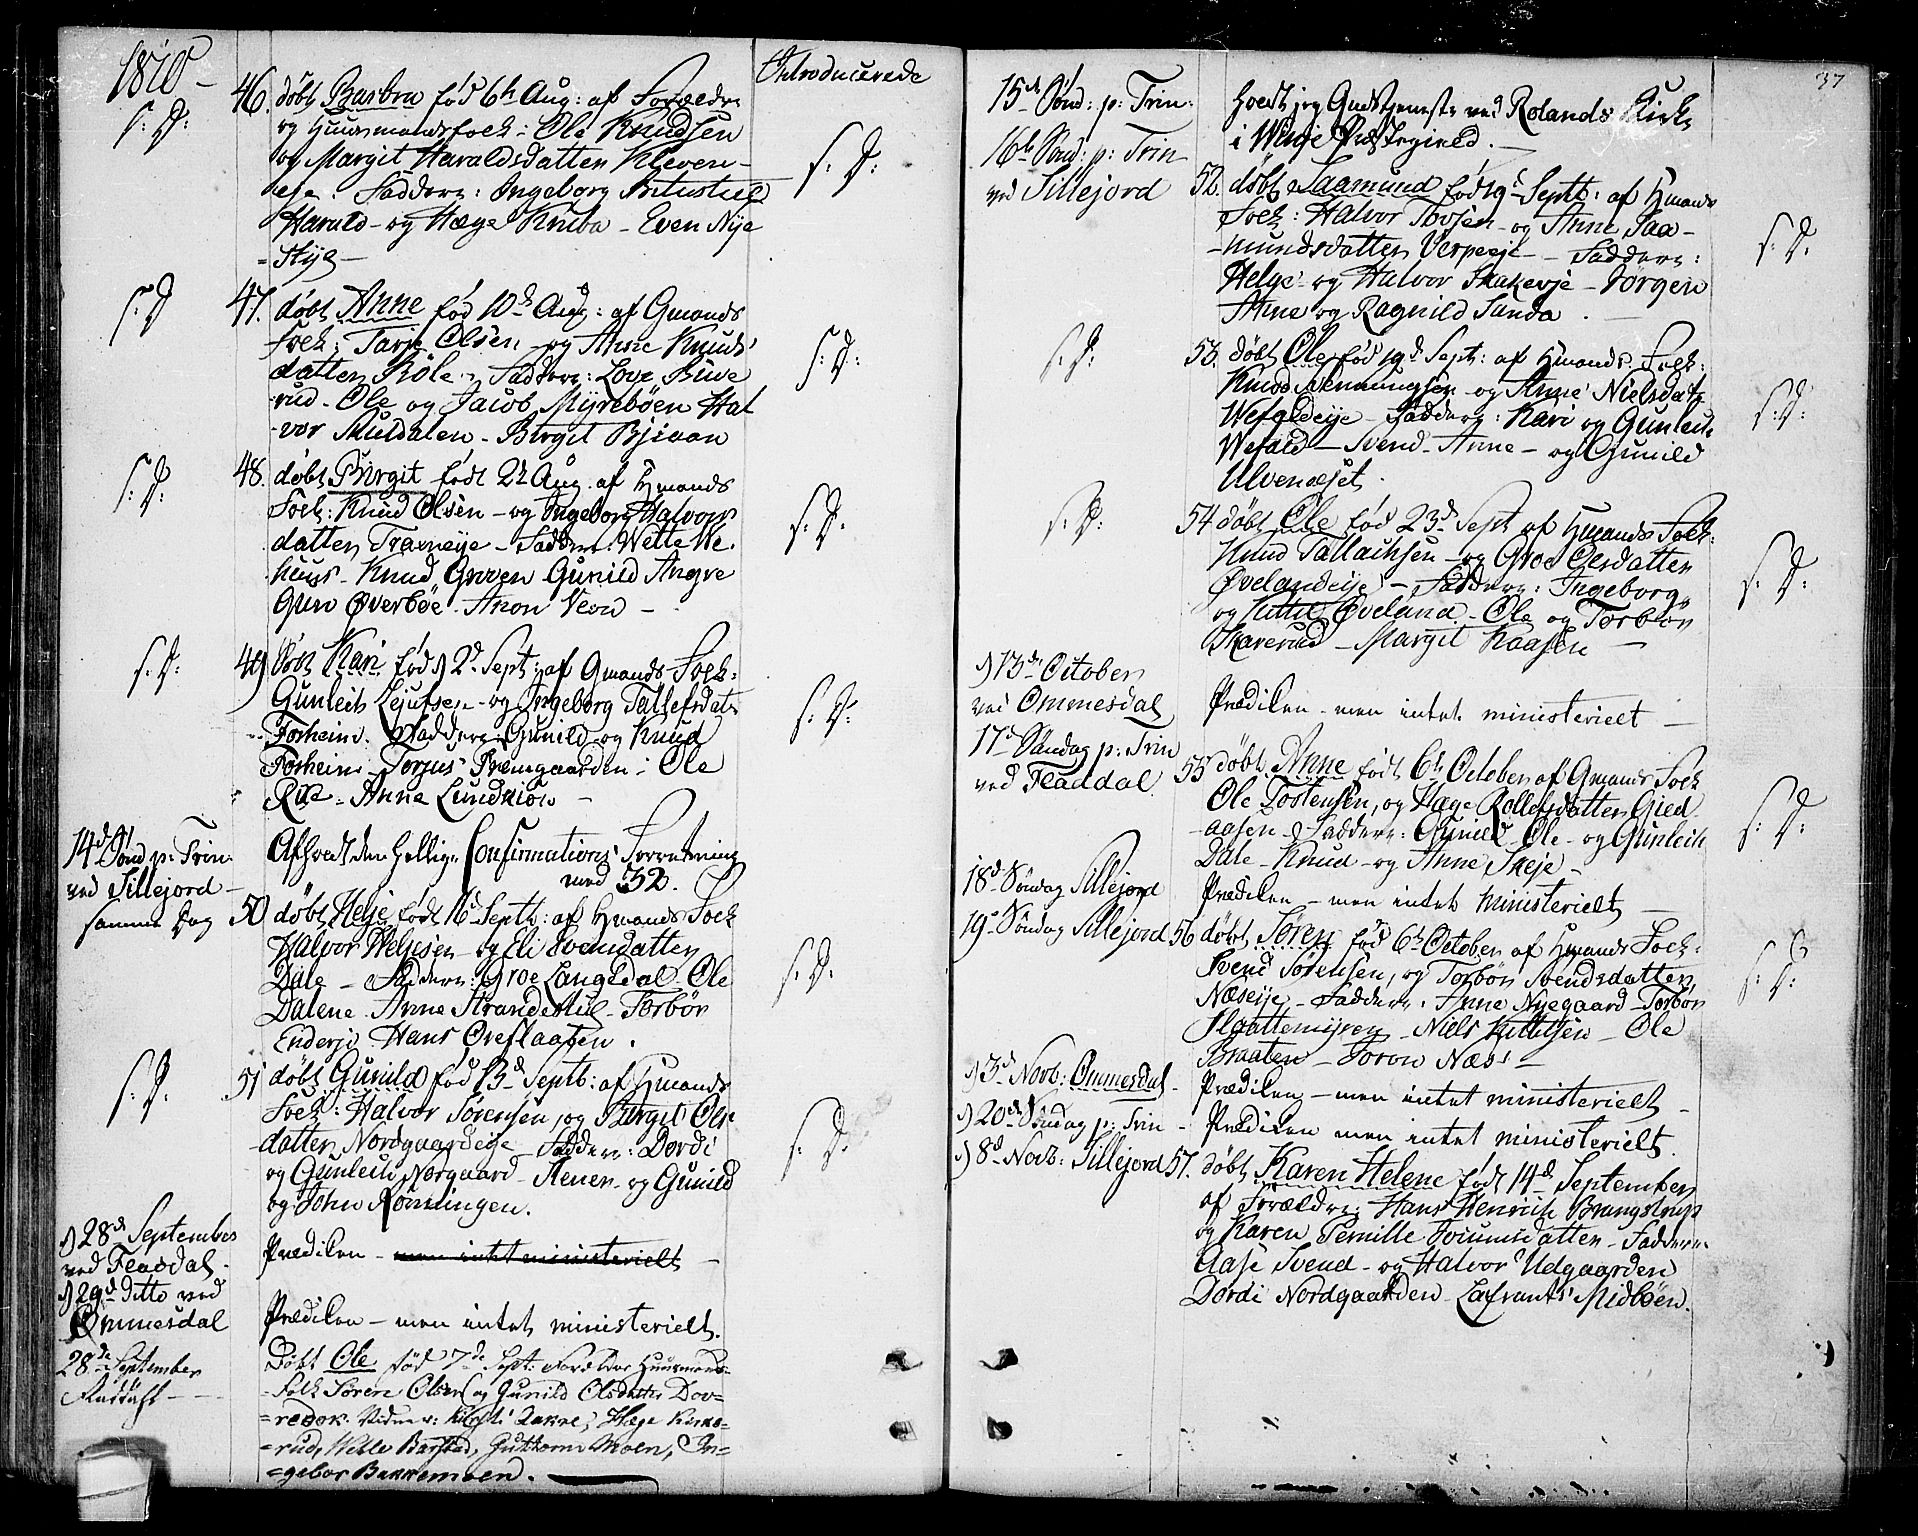 1810 -
Introducerede
S: D:
46. døbt Barbra fød 6te Aug: af Forældre
og Huusmandsfolk: Ole Knudsen
og Margit Haraldsdatter Kleven-
eje. Faddere: Ingeborg
Harald - og Hæge Kniba - Even Nye
S: D:
S: D
47. døbt Anne fød 10de Aug: af Gmands
Folk: Tarje Olsen - og Anne Knuds
datter Bøle - Faddere: Love Biive
rud - Ole og Jacob Myrebøen Hal
-vor Muldalen - Birgit Bjaaen
S: D:
S: D:
48. døbt Birgit født 22 Aug. af Hmands
Folk: Knud Olsen - og Ingeborg Halvors
datter - Faddere: Wetle We.
huus - Knud Groven Gunild
Gun Øverbøe. Anon Veon -
S: D:
S: D:
49 døbt Kari fød 2d Sept: af Gmands Folk:
Gunleik Ljufsen - og Ingeborg Tallefsdatr
Forheim. Faddere: Gunild og Knud
Forheim - Torjus Præmgaarden - Ole
Rue - Anne Lundkion -
S: D:
14d Sønd p: Trin:
ved Sillejord -
samme Dag
Afholdt den hellige Confirmations Forretning
med 32.
50 døbt Helje født 16d Septb: af Hmands Folk
Halvor Heljesen - og Eli Svensdatter
Dale - Faddere: Groe Langedal - Ole
Dalene - Anne Strandestul - Torbør
Enderje Hans Øreflaaten.
S: D:
S: D:
51 døbt Gunild fød 13d Septb: af Hmands
Folk: Halvor Sørensen, og Birgit Ols
datter Nordgaardeije - Faddere: Dordi
og Gunleik Norgaard - Stener - og Gunild
og John Rønningen.
S: D:
28de September
ved Fladdal -
29d ditto ved
Ommesdal
Prædiken - men intet ministerielt -
Prædiken - men intet ministerielt.
28de September
Døbt Ole fød 7de Sept: Forældre Huusmands-
-Folk Søren Olsen og Gunild Olsdatter Dov-
=redok. Vidner: Kirsti Hæge
=rud, Kittil Barstad, Guttorm Moen, In-
=gebor Bakkemoen.
37
15d Sønd: p: Trin:
holdt jeg Gudstjeneste ved Rolands Kirke
i Winje Præstegield. -
16de Sønd: p: Trin
ved Sillejord
52. døbt Saamund født 9d Septb: af Hmands
Folk: Halvor Tovsen - og Anne Saa-
-mundsdatter Verpeeje - Faddere:
Helge - og Halvor Skakeeje - Jørgen
Anne og Ragnild Sanda.
S: D:
S: D:
53. døbt Ole fød 19d Sept: af Hmands Folk:
Knud Nemmingsen - og Anne Nielsdatr
Wefaldeije - Faddere: Kari og Gunleik
Wefald - Svend - Anne - og Gunild
Ulvenæset.
S: D:
S: D:
54 døbt Ole fød 23d Sept af Hmands Folk:
Knud Tallachsen - og Groe Olsdatter
Øvelandeije - Faddere: Ingeborg
og Kittil Øveland - Ole og Torbiør
Skarerud - Margit Kaasen -
S: D:
13de October
ved Ommesdal
Prædiken - men intet ministerielt -
17d Søndag p: Trin
ved Fladdal
55 døbt Anne født 6te October af Gmands Folk
Ole Tostensen, og Hæge Rollefsdatter Gjed
-aasen - Faddere: Gunild - Ole - og Gunleik
Dale - Knud - og Anne Skeje -
S: D:
18d Søndag Sillejord
Prædiken - men intet ministerielt -
19d Søndag Sillejord
56 døbt Søren fød 6te October af Hmands Folk:
Svend Sørensen, og Torbør Svendsdatter,
Næseije - Faddere: Anne Nyegaard - Torbør
Slaattemyren - Niels Kittilsen - Ole
Braaten - Toron Næss -
S: D:
3d Novb: Ommesdal -
Prædiken - men intet ministerielt -
20de Søndag p: Trin -
Prædiken men intet ministerielt.
8d Novb: Sillejord
57. døbt Karen Helene født 14d September
af Forældre: Hans Henrich Brangstrup
og Karen Pernille - Faddere:
Aase Svend - og Halvor Udgaarden
Dordi Nordgaarden - Lafrants Midbøen.